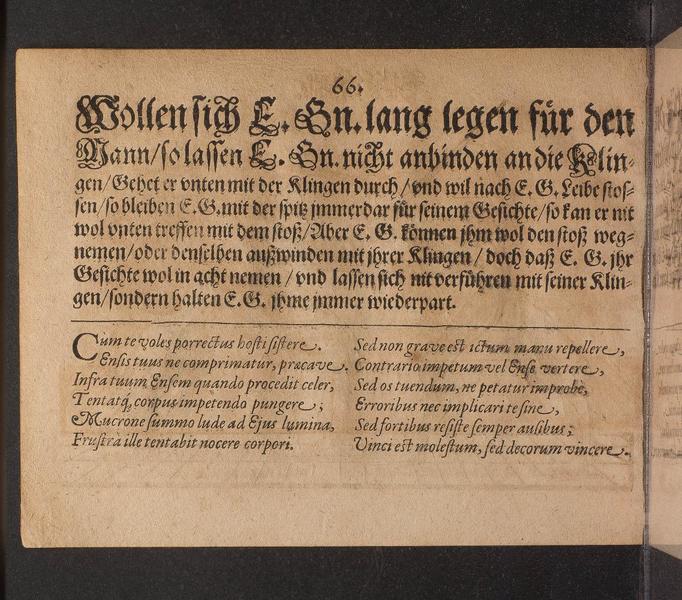 66.
Wollen sich E. Gn. lang legen für den
Mann/so lassen E. Gn. nicht anbinden an die Klin-
gen/Gehet er vnten mit der Klingen durch/vnd wil nach E. G. Leibe stos-
sen/so bleiben E. G. mit der spitz jmmerdar für seinem Gesichte/so kan er nit
wol vnten treffen mit dem stoß/Aber E. G. können jhm wol den stoß weg-
nemen/oder denselben außwinden mit jhrer Klingen/doch daß E. G. jhr
Gesichte wol in acht nemen/vnd lassen sich nit verführen mit seiner Klin-
gen/sondern halten E. G. jhme jmmer wiederpart.
Cum te voles porrectus hosti sistere.
Ensis tuus ne comprimatur, præcave.
Infra tuum Ensem quando procedit celer,
Tentatq́, corpus impetendo pungere;
Mucrone summo lude ad Ejus lumina,
Frustrà ille tentabit nocere corpori.
Sed non grave est ictum manu repellere,
Contrario impetum vel Ense vertere,
Sed os tuendum, ne petatur improbè,
Erroribus nec implicari te sine,
Sed fortibus resiste semper ausibus;
Vinci est molestum, sed decorum vincere.